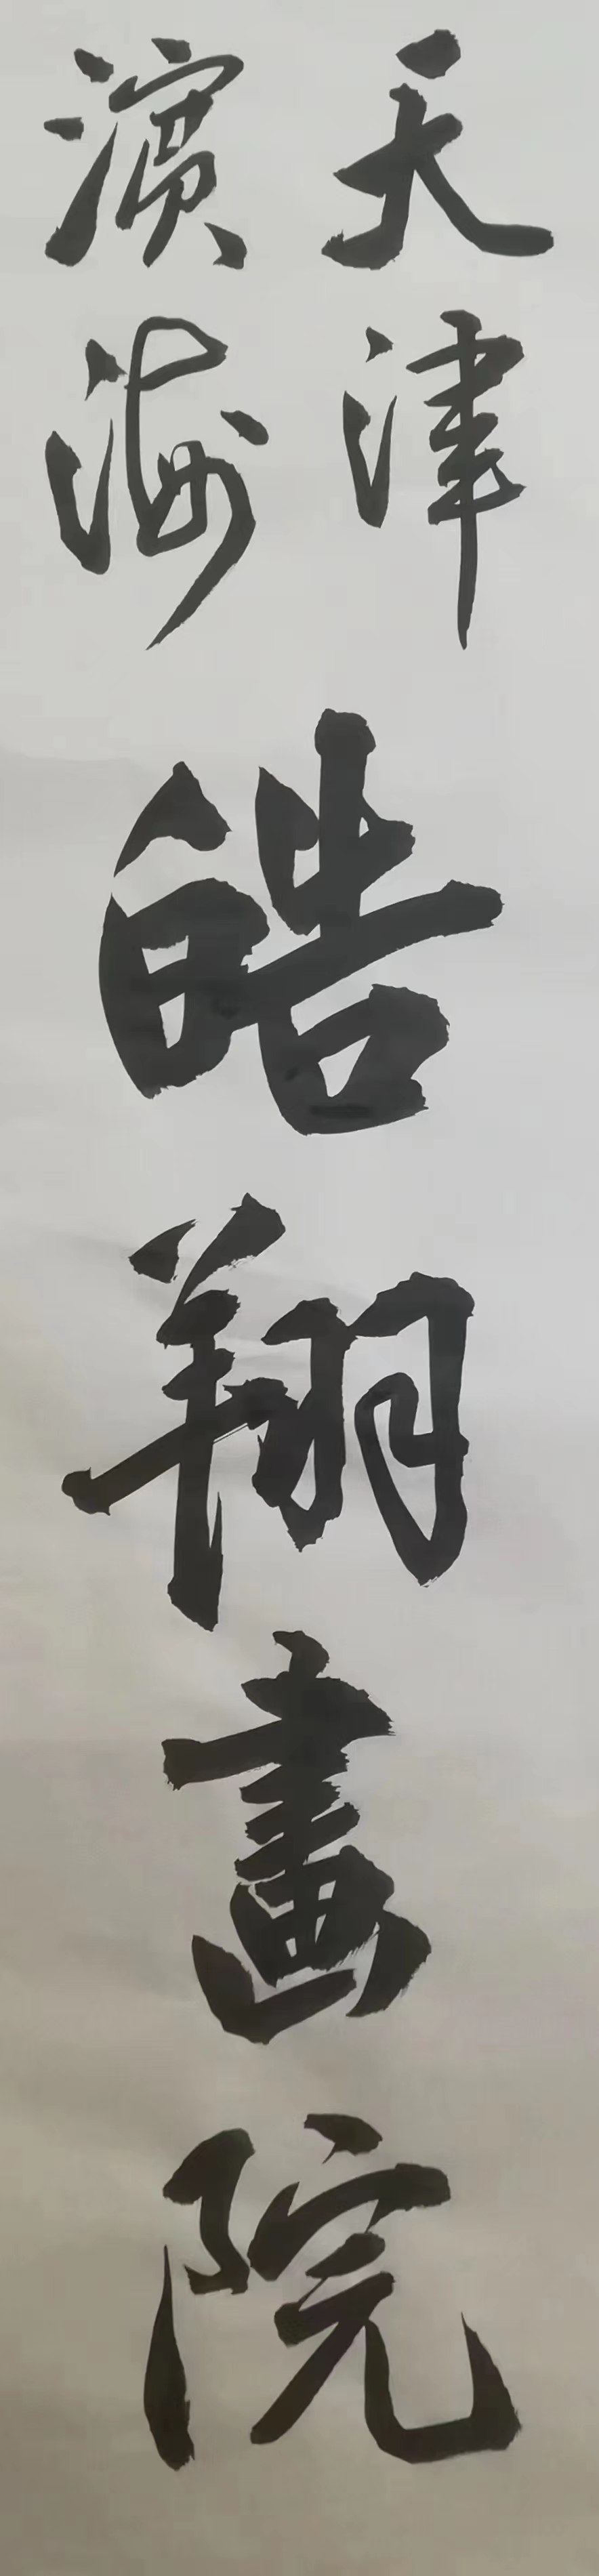 天津
濱海
皓翔畫院